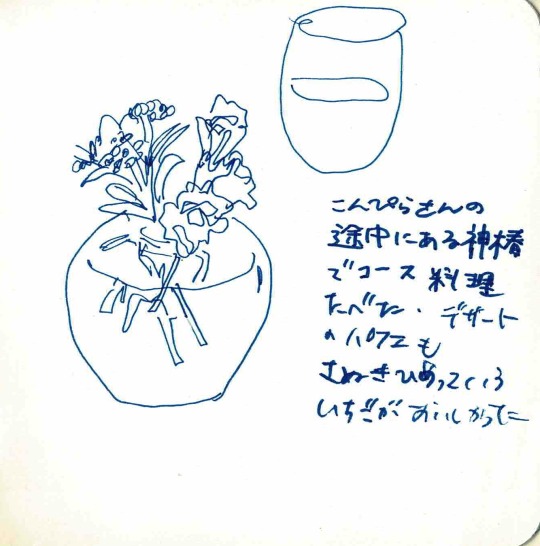 こんぴらさんの
途中にある神椿
でコース料理
たべた．デザート
のパフェも
さぬきひめっていう
いちごがおいしかった